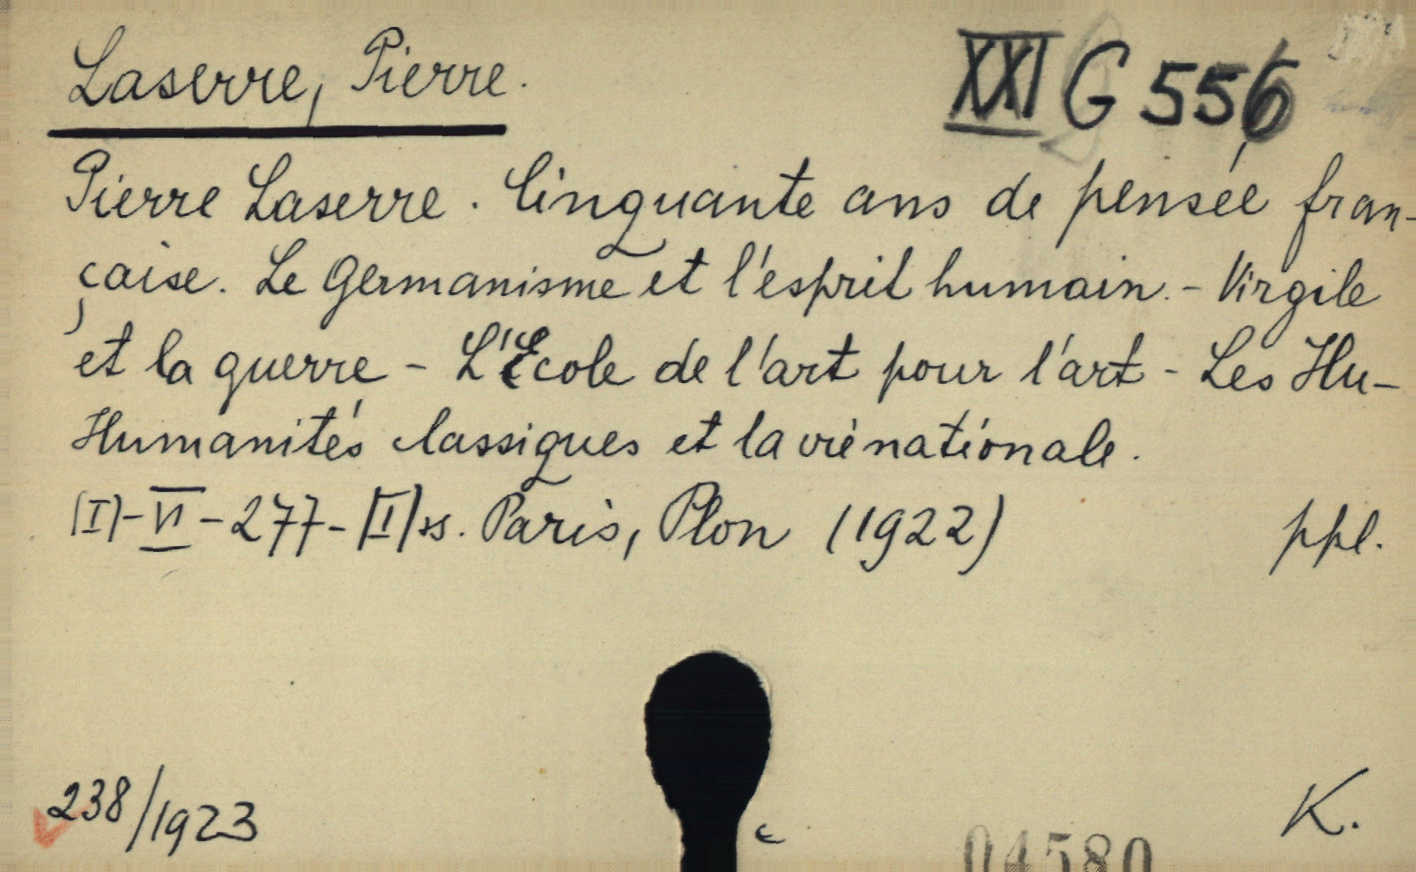 Laserre, Pierre.
XXI G 556
Pierre Laserre. Cinquante ans de pensée fran-
çaise. Le Germanisme et l'esprit humain. - Virgile
et la guerre - L'Ecole de l'art pour l'art - Les Hu-
Humanités classiques et la vie nationale.
(I)-VI-277-[I] ss. Paris, Plon (1922) ppl.
238/1923
K.
04580